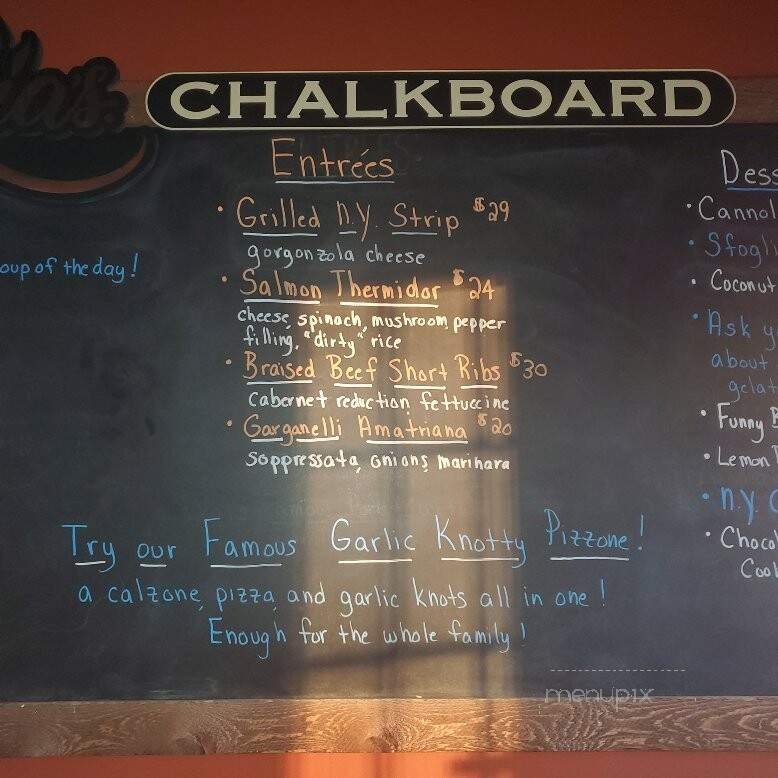 CHALKBOARD
Entrées
• Grilled N.Y. Strip $29
gorgonzola cheese
• Salmon Thermidor $24
cheese, spinach, mushroom, pepper
filling, "dirty" rice
• Braised Beef Short Ribs $30
cabernet reduction, fettuccine
• Garganelli Amatriana $20
soppressata, onions, marinara
Try our Famous Garlic Knotty Pizzone!
a calzone, pizza, and garlic knots all in one!
Enough for the whole family!
oup of the day!
Dess
• Cannol
• Sfogli
• Coconut
• Ask y
about
gelat
• Funny B
• Lemon
• N.Y. C
• Chocol
Cook
menupix